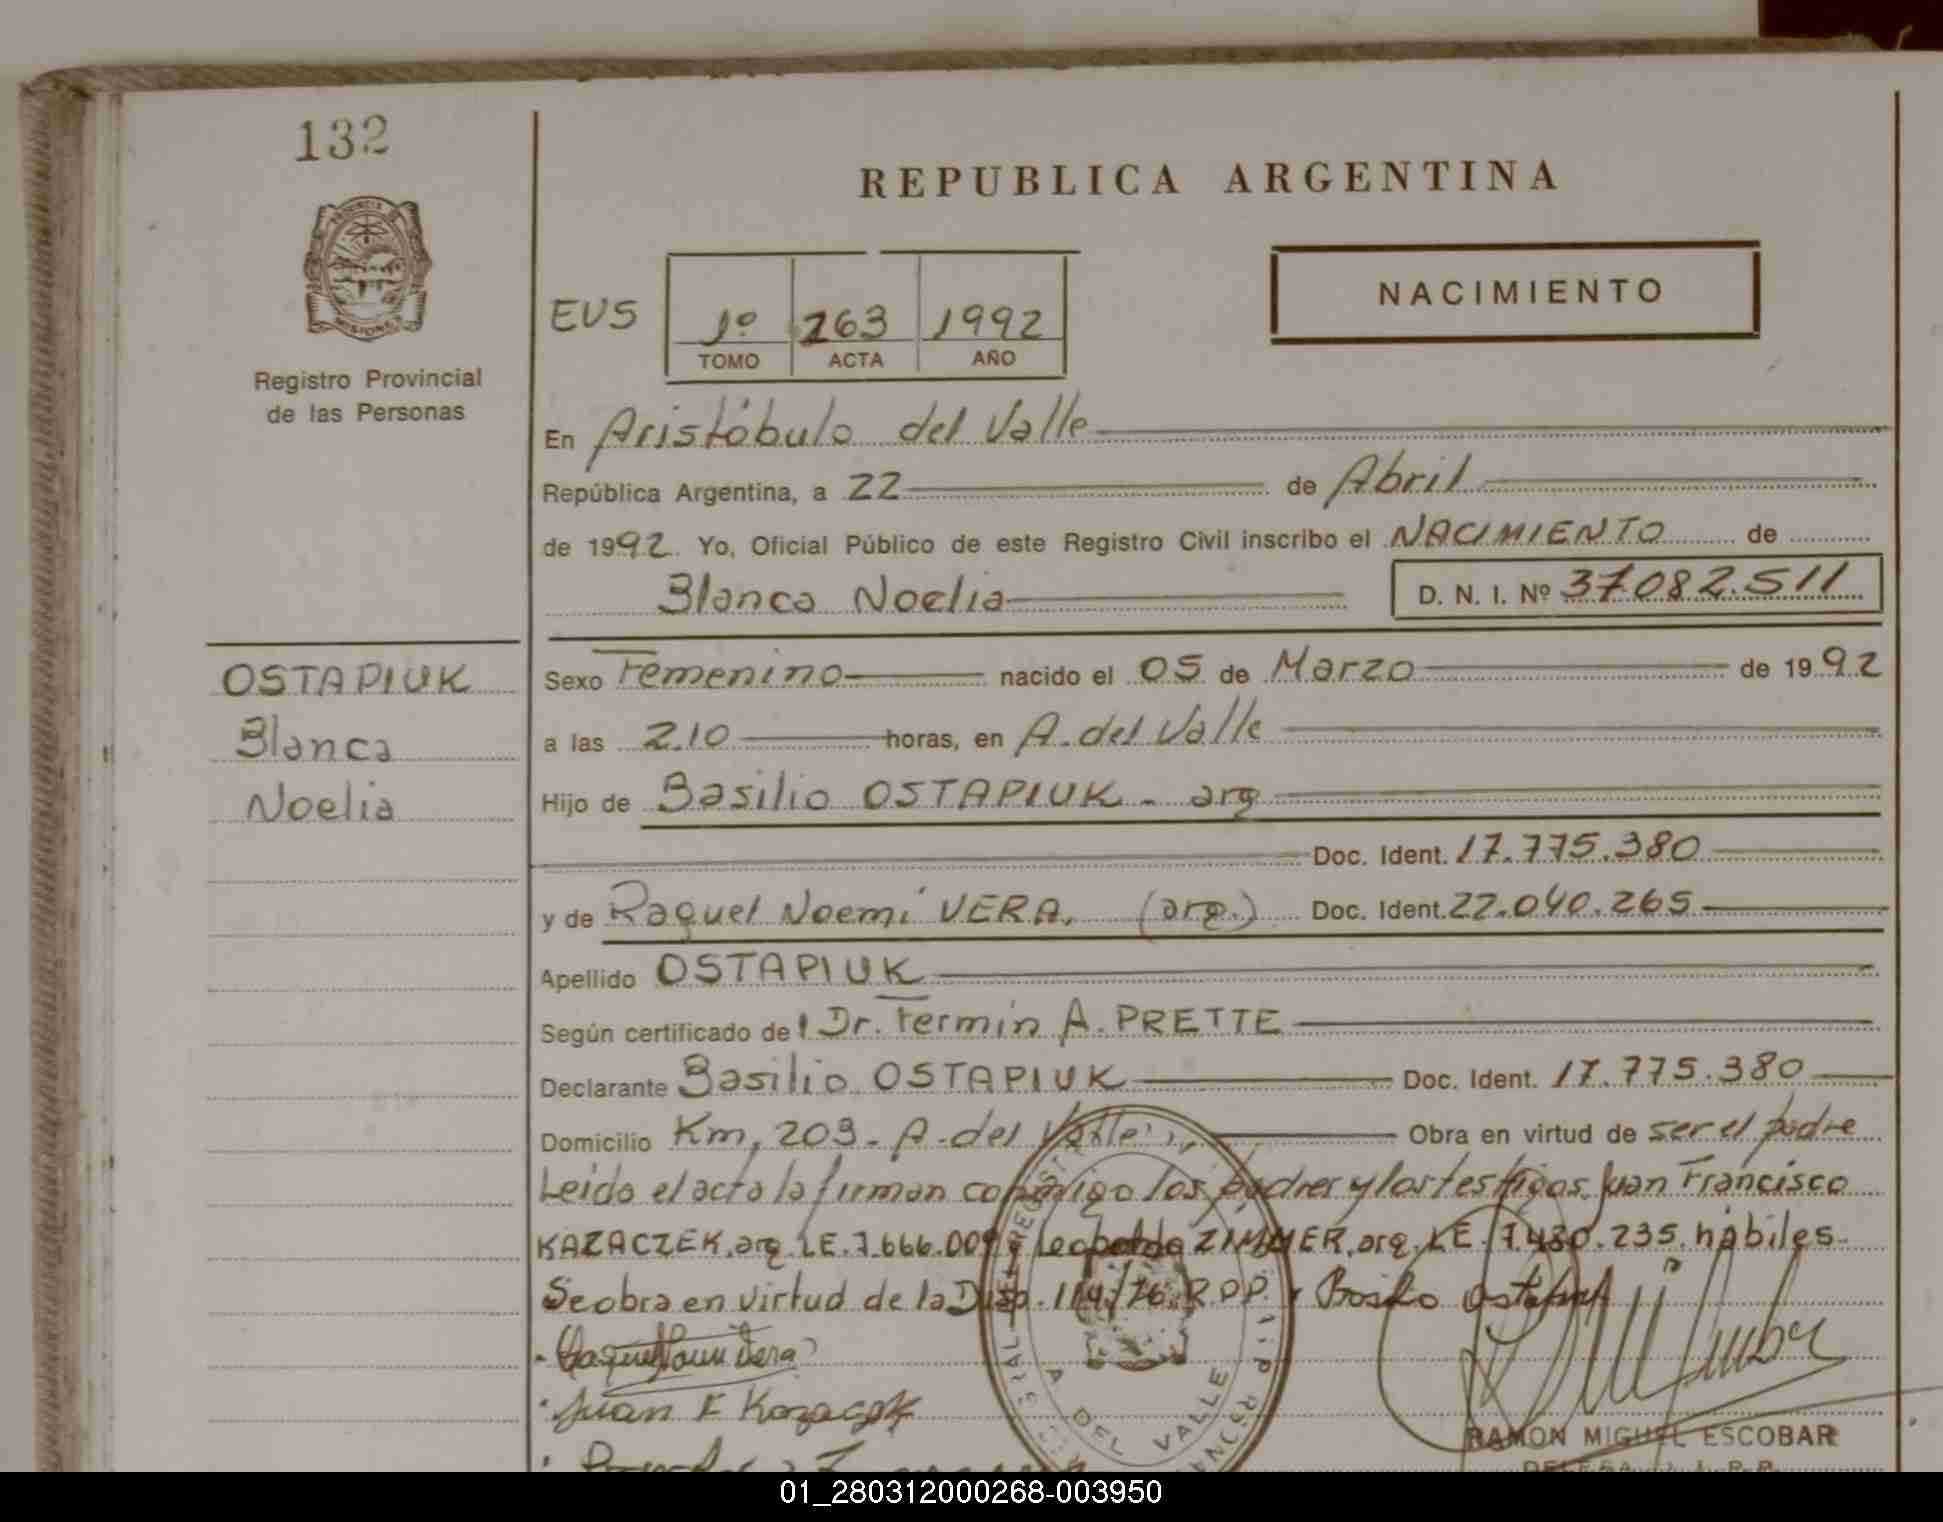 132
REPUBLICA ARGENTINA
PROVINCIA DE
MISIONES
Registro Provincial
de las Personas
NACIMIENTO
EUS
1º 263 1992
TOMO ACTA AÑO
En Aristóbulo del Valle
República Argentina, a 22 de Abril
de 1992. Yo, Oficial Público de este Registro Civil inscribo el NACIMIENTO de
Blanca Noelia D. N. I. Nº 37.082.511
OSTAPIUK
Blanca
Noelia
Sexo Femenino nacido el 05 de Marzo de 1992
a las 2.10 horas, en A. del Valle
Hijo de Basilio OSTAPIUK - arg
Doc. Ident. 17.775.380
y de Raquel Noemí VERA. (arg.) Doc. Ident. 22.040.265
Apellido OSTAPIUK
Según certificado de l Dr. Fermín A. PRETTE
Declarante Basilio OSTAPIUK Doc. Ident. 17.775.380
Domicilio Km, 209 - A. del Valle Obra en virtud de ser el padre
Leido el acta la firman conmigo los padres y los testigos Juan Francisco
KAZACZEK. arg. LE. 7.666.009 y Leopoldo ZIMMER. arg. LE. 7.480.235. hábiles.
Se obra en virtud de la Disp. 114/76. R.P.P.
Juan F Kazaczek
A DEL VALLE
RAMON MIGUEL ESCOBAR
01_280312000268-003950